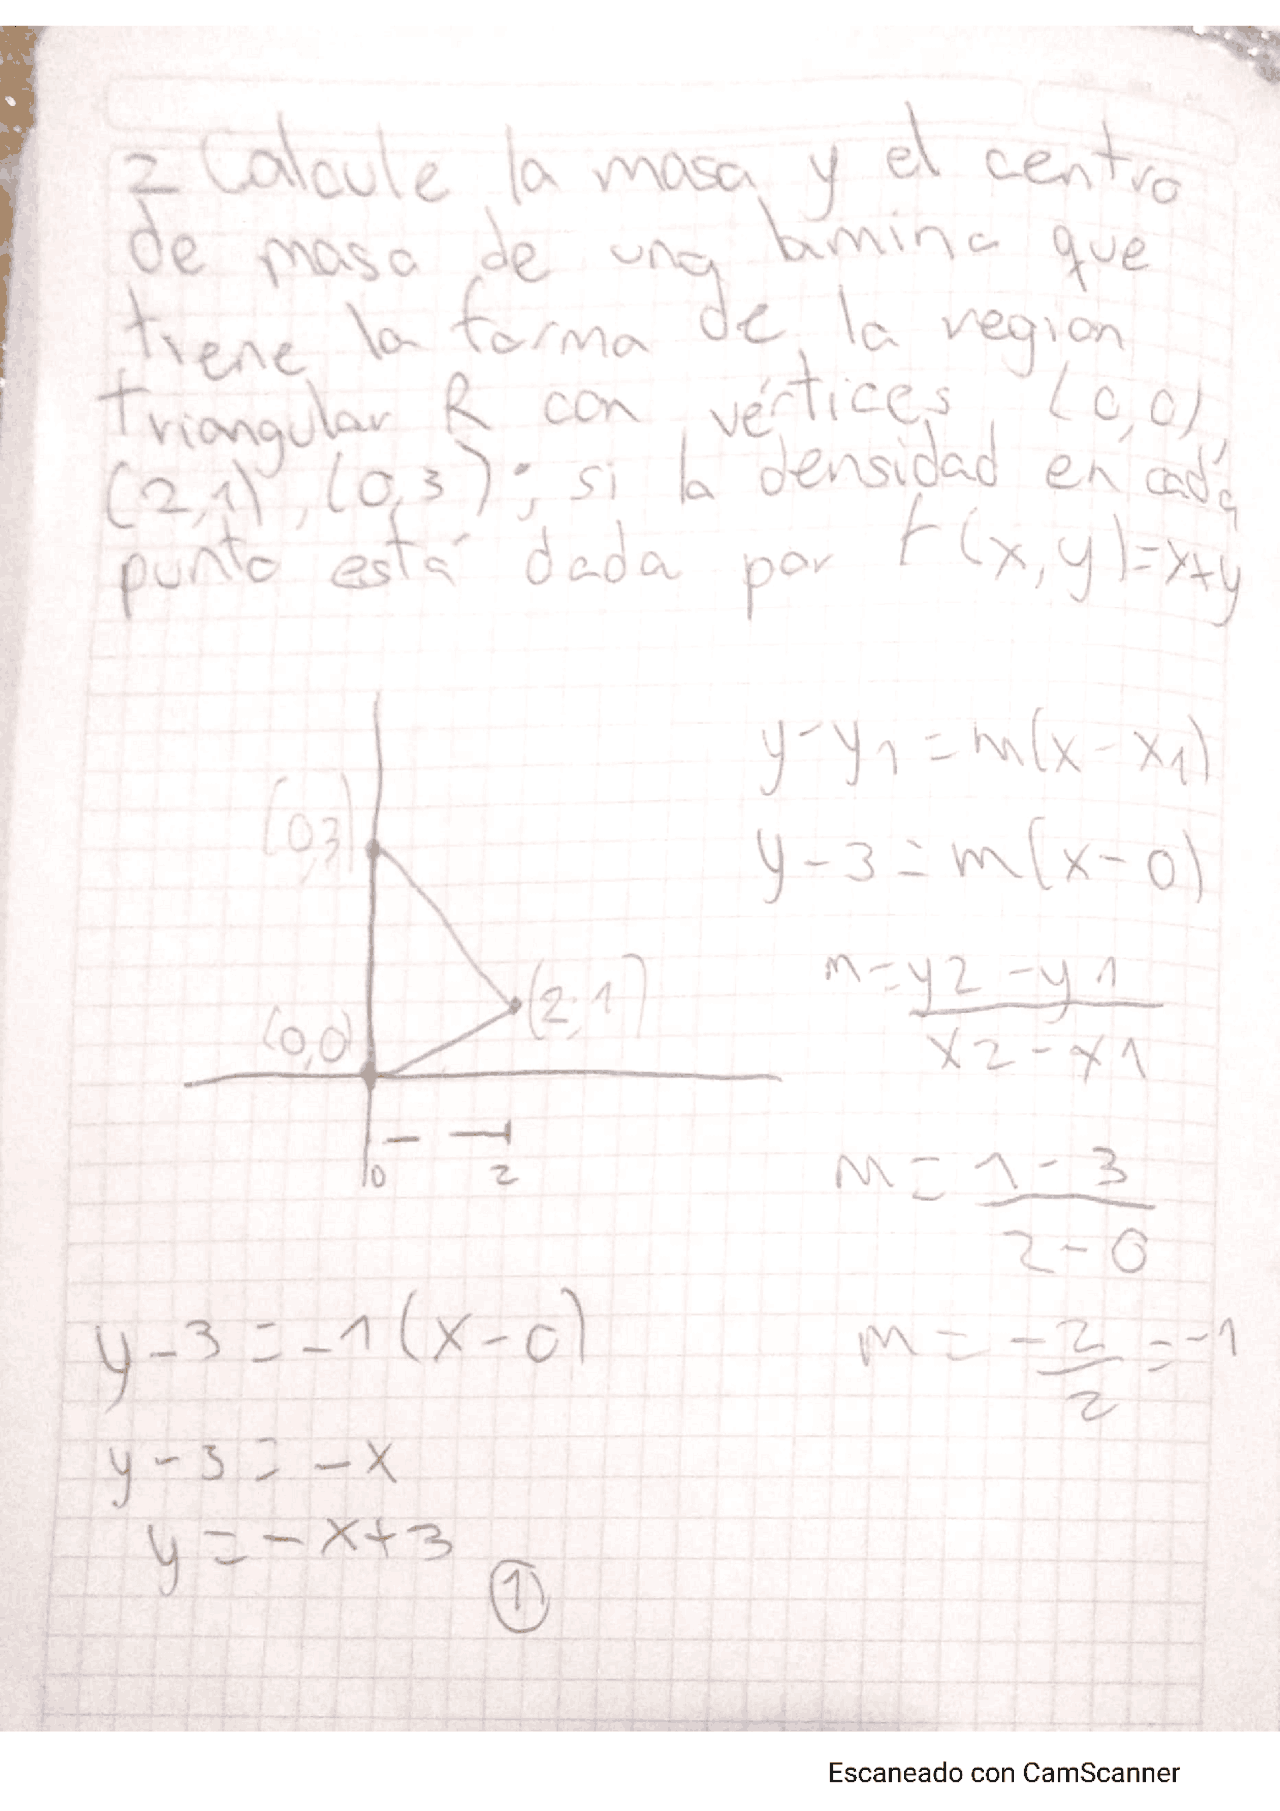 2 Calcule la masa y el centro
de masa de una lamina que
tiene la forma de la region
triangular R con vértices (0,0),
(2,1), (0,3); si la densidad en cada
punto está dada por f(x,y)=x+y
y-y1=m(x-x1)
(0,3)
y-3=m(x-0)
m=y2-y1
x2-x1
(2,1)
(0,0)
0 2
m=1-3
2-0
y-3=-1(x-0)
m=-2=-1
2
y-3=-x
y=-x+3
1
Escaneado con CamScanner